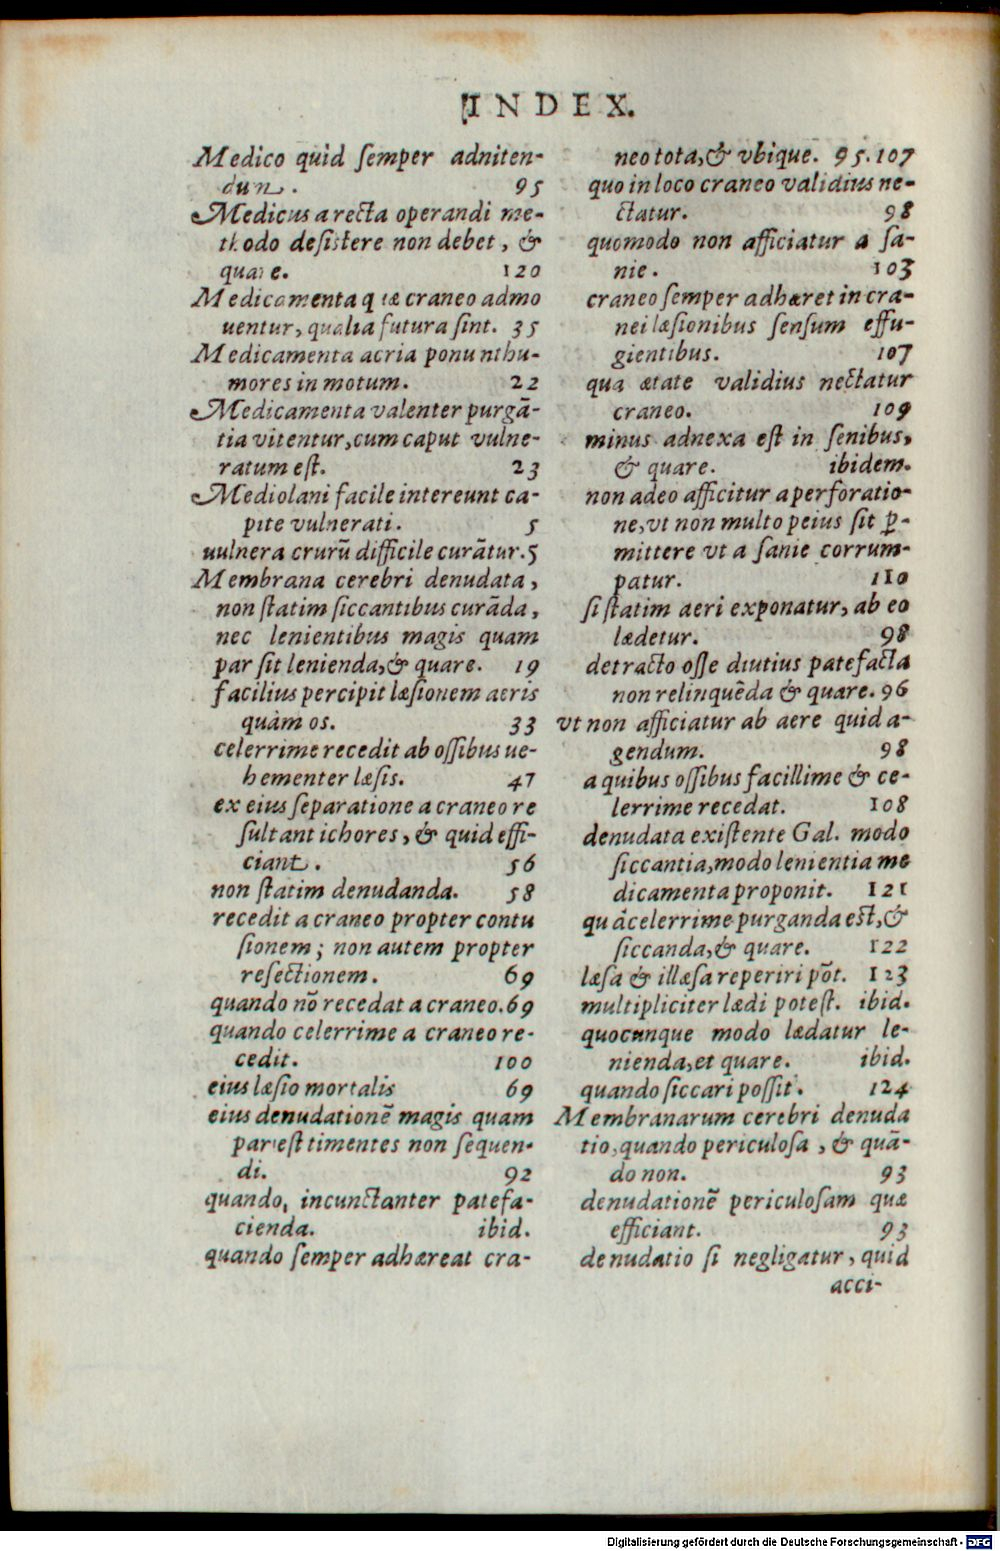 INDEX.
Medico quid ſemper adniten-
dun. 95
Medicus a recta operandi me-
thodo deſiſtere non debet, &
quare. 120
Medicamenta quæ craneo admo
uentur, qualia futura ſint. 35
Medicamenta acria ponunt hu-
mores in motum. 22
Medicamenta valenter purgā-
tia vitentur, cum caput vulne-
ratum eſt. 23
Mediolani facile intereunt ca-
pite vulnerati. 5
uulnera crurū difficile curātur. 5
Membrana cerebri denudata,
non ſtatim ſiccantibus curāda,
nec lenientibus magis quam
par ſit lenienda, & quare. 19
facilius percipit læſionem aeris
quàm os. 33
celerrime recedit ab oſſibus ue-
hementer læſis. 47
ex eius ſeparatione a craneo re
ſultant ichores, & quid effi-
ciant. 56
non ſtatim denudanda. 58
recedit a craneo propter contu
ſionem; non autem propter
reſectionem. 69
quando nō recedat a craneo. 69
quando celerrime a craneo re-
cedit. 100
eius læſio mortalis 69
eius denudationē magis quam
par eſt timentes non ſequen-
di. 92
quando, incunctanter patefa-
cienda. ibid.
quando ſemper adhæreat cra-
neo tota, & vbique. 95. 107
quo in loco craneo validius ne-
ctatur. 98
quomodo non afficiatur a ſa-
nie. 103
craneo ſemper adhæret in cra-
nei læſionibus ſenſum effu-
gientibus. 107
qua ætate validius nectatur
craneo. 109
minus adnexa eſt in ſenibus,
& quare. ibidem.
non adeo afficitur a perforatio-
ne, vt non multo peius ſit p̱-
mittere vt a ſanie corrum-
patur. 110
ſi ſtatim aeri exponatur, ab eo
lædetur. 98
detracto oſſe diutius patefacta
non relinquēda & quare. 96
vt non afficiatur ab aere quid a-
gendum. 98
a quibus oſſibus facillime & ce-
lerrime recedat. 108
denudata exiſtente Gal. modo
ſiccantia, modo lenientia me
dicamenta proponit. 121
quā celerrime purganda eſt, &
ſiccanda, & quare. 122
læſa & illæſa reperiri pōt. 123
multipliciter lædi poteſt. ibid.
quocunque modo lædatur le-
nienda, et quare. ibid.
quando ſiccari poſſit. 124
Membranarum cerebri denuda
tio, quando periculoſa, & quā-
do non. 93
denudationē periculoſam quæ
efficiant. 93
denudatio ſi negligatur, quid
acci-
Digitalisierung gefördert durch die Deutsche Forschungsgemeinschaft - DFG